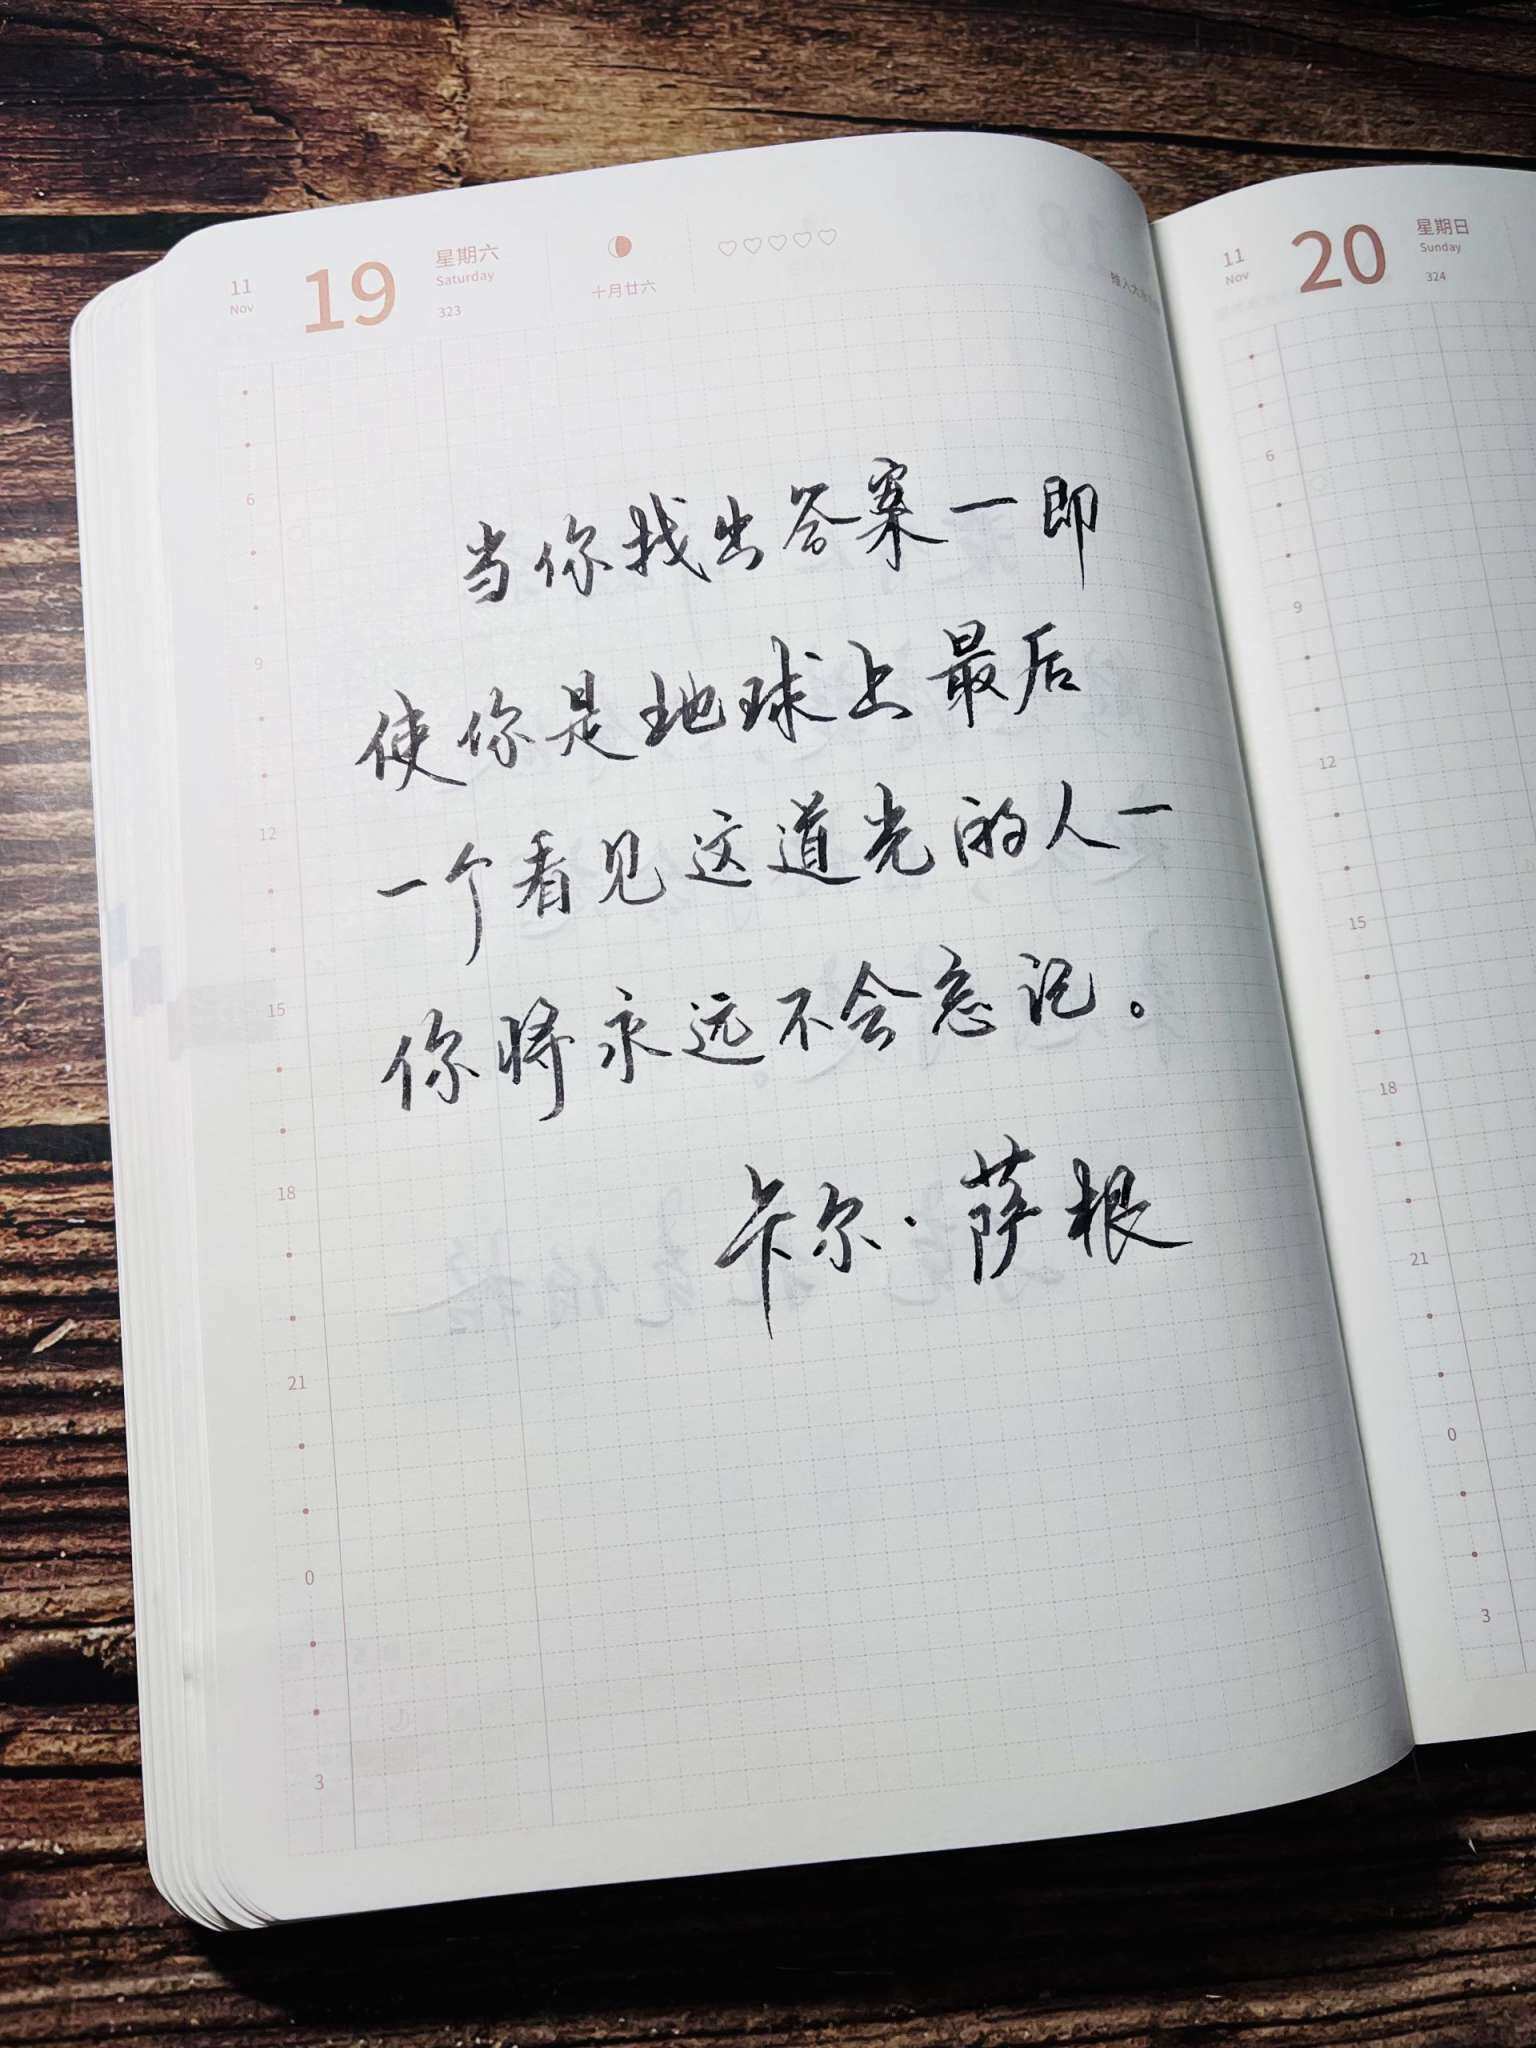 11
Nov
19
星期六
Saturday
323
十月廿六
11
Nov
20
星期日
Sunday
324
当你找出答案一即
使你是地球上最后
一个看见这道光的人一
你将永远不会忘记。
卡尔·萨根
6
9
12
15
18
21
0
3
6
9
12
15
18
21
0
3